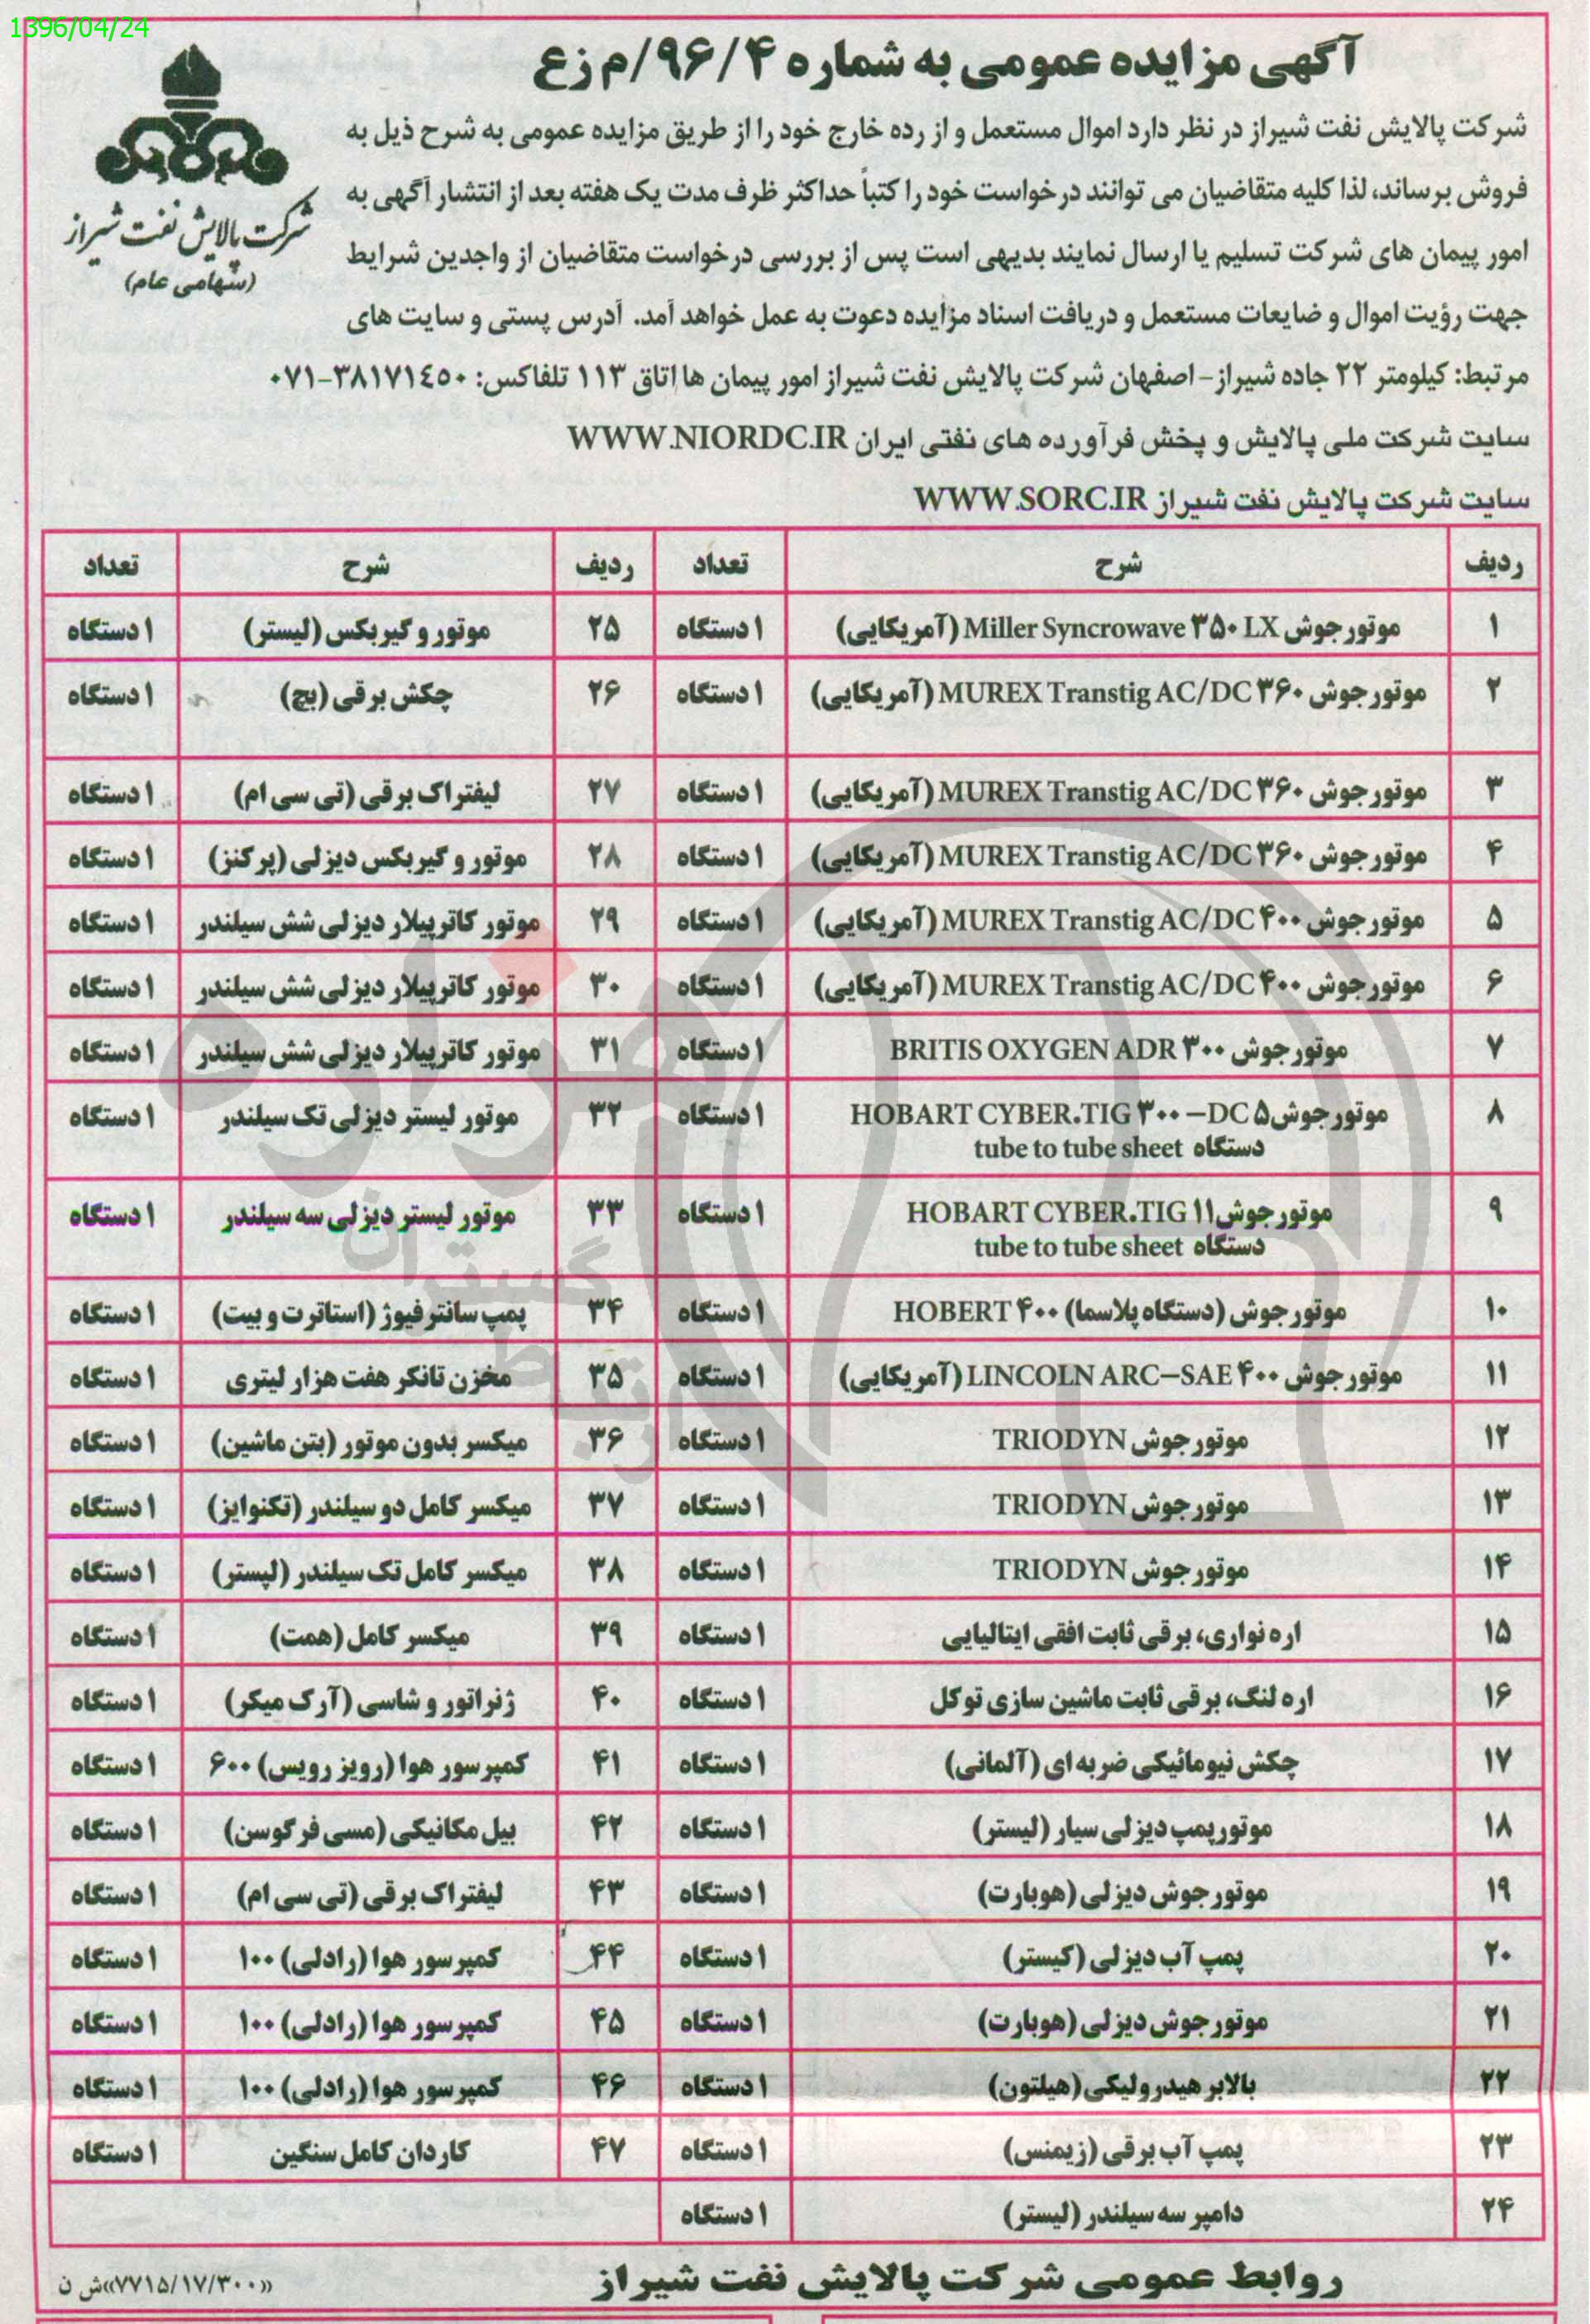 1396/04/24
آگهی مزایده عمومی به شماره ۹۶/۴/م زع
شرکت پالایش نفت شیراز
(سهامی عام)
شرکت پالایش نفت شیراز در نظر دارد اموال مستعمل و از رده خارج خود را از طریق مزایده عمومی به شرح ذیل به
فروش برساند، لذا کلیه متقاضیان می توانند درخواست خود را کتباً حداکثر ظرف مدت یک هفته بعد از انتشار آگهی به
امور پیمان های شرکت تسلیم یا ارسال نمایند بدیهی است پس از بررسی درخواست متقاضیان از واجدین شرایط
جهت رؤیت اموال و ضایعات مستعمل و دریافت اسناد مزایده دعوت به عمل خواهد آمد. آدرس پستی و سایت های
مرتبط: کیلومتر ۲۲ جاده شیراز- اصفهان شرکت پالایش نفت شیراز امور پیمان ها اتاق ۱۱۳ تلفاکس: ۳۸۱۷۱٤٥۰-۰۷۱
سایت شرکت ملی پالایش و پخش فرآورده های نفتی ایران WWW.NIORDC.IR
سایت شرکت پالایش نفت شیراز WWW.SORC.IR
ردیف شرح تعداد ردیف شرح تعداد
۱ موتور جوش Miller Syncrowave ۳۵۰ LX (آمریکایی) ۱ دستگاه ۲۵ موتور و گیربکس (لیستر) ۱ دستگاه
۲ موتور جوش MUREX Transtig AC/DC ۳۶۰ (آمریکایی) ۱ دستگاه ۲۶ چکش برقی (بچ) ۱ دستگاه
۳ موتور جوش MUREX Transtig AC/DC ۳۶۰ (آمریکایی) ۱ دستگاه ۲۷ لیفتراک برقی (تی سی ام) ۱ دستگاه
۴ موتور جوش MUREX Transtig AC/DC ۳۶۰ (آمریکایی) ۱ دستگاه ۲۸ موتور و گیربکس دیزلی (پرکنز) ۱ دستگاه
۵ موتور جوش MUREX Transtig AC/DC ۴۰۰ (آمریکایی) ۱ دستگاه ۲۹ موتور کاترپیلار دیزلی شش سیلندر ۱ دستگاه
۶ موتور جوش MUREX Transtig AC/DC ۴۰۰ (آمریکایی) ۱ دستگاه ۳۰ موتور کاترپیلار دیزلی شش سیلندر ۱ دستگاه
۷ موتور جوش BRITIS OXYGEN ADR ۳۰۰ ۱ دستگاه ۳۱ موتور کاترپیلار دیزلی شش سیلندر ۱ دستگاه
۸ موتور جوش HOBART CYBER.TIG ۳۰۰ –DC ۵ ۱ دستگاه ۳۲ موتور لیستر دیزلی تک سیلندر ۱ دستگاه
دستگاه tube to tube sheet
۹ موتور جوش HOBART CYBER.TIG ۱۱ ۱ دستگاه ۳۳ موتور لیستر دیزلی سه سیلندر ۱ دستگاه
دستگاه tube to tube sheet
۱۰ موتور جوش (دستگاه پلاسما) HOBERT ۴۰۰ ۱ دستگاه ۳۴ پمپ سانترفیوژ (استاترت و بیت) ۱ دستگاه
۱۱ موتور جوش LINCOLN ARC–SAE ۴۰۰ (آمریکایی) ۱ دستگاه ۳۵ مخزن تانکر هفت هزار لیتری ۱ دستگاه
۱۲ موتور جوش TRIODYN ۱ دستگاه ۳۶ میکسر بدون موتور (بتن ماشین) ۱ دستگاه
۱۳ موتور جوش TRIODYN ۱ دستگاه ۳۷ میکسر کامل دو سیلندر (تکنوایز) ۱ دستگاه
۱۴ موتور جوش TRIODYN ۱ دستگاه ۳۸ میکسر کامل تک سیلندر (لیستر) ۱ دستگاه
۱۵ اره نواری، برقی ثابت افقی ایتالیایی ۱ دستگاه ۳۹ میکسر کامل (همت) ۱ دستگاه
۱۶ اره لنگ، برقی ثابت ماشین سازی توکل ۱ دستگاه ۴۰ ژنراتور و شاسی (آرک میکر) ۱ دستگاه
۱۷ چکش نیوماتیکی ضربه ای (آلمانی) ۱ دستگاه ۴۱ کمپرسور هوا (رویز رویس) ۶۰۰ ۱ دستگاه
۱۸ موتور پمپ دیزلی سیار (لیستر) ۱ دستگاه ۴۲ بیل مکانیکی (مسی فرگوسن) ۱ دستگاه
۱۹ موتور جوش دیزلی (هوبارت) ۱ دستگاه ۴۳ لیفتراک برقی (تی سی ام) ۱ دستگاه
۲۰ پمپ آب دیزلی (کیستر) ۱ دستگاه ۴۴ کمپرسور هوا (رادلی) ۱۰۰ ۱ دستگاه
۲۱ موتور جوش دیزلی (هوبارت) ۱ دستگاه ۴۵ کمپرسور هوا (رادلی) ۱۰۰ ۱ دستگاه
۲۲ بالابر هیدرولیکی (هیلتون) ۱ دستگاه ۴۶ کمپرسور هوا (رادلی) ۱۰۰ ۱ دستگاه
۲۳ پمپ آب برقی (زیمنس) ۱ دستگاه ۴۷ کاردان کامل سنگین ۱ دستگاه
۲۴ دامپر سه سیلندر (لیستر) ۱ دستگاه
روابط عمومی شرکت پالایش نفت شیراز
«۷۷۱۵/۱۷/۳۰۰»ش ن
هزاره
گستران
ارتباط